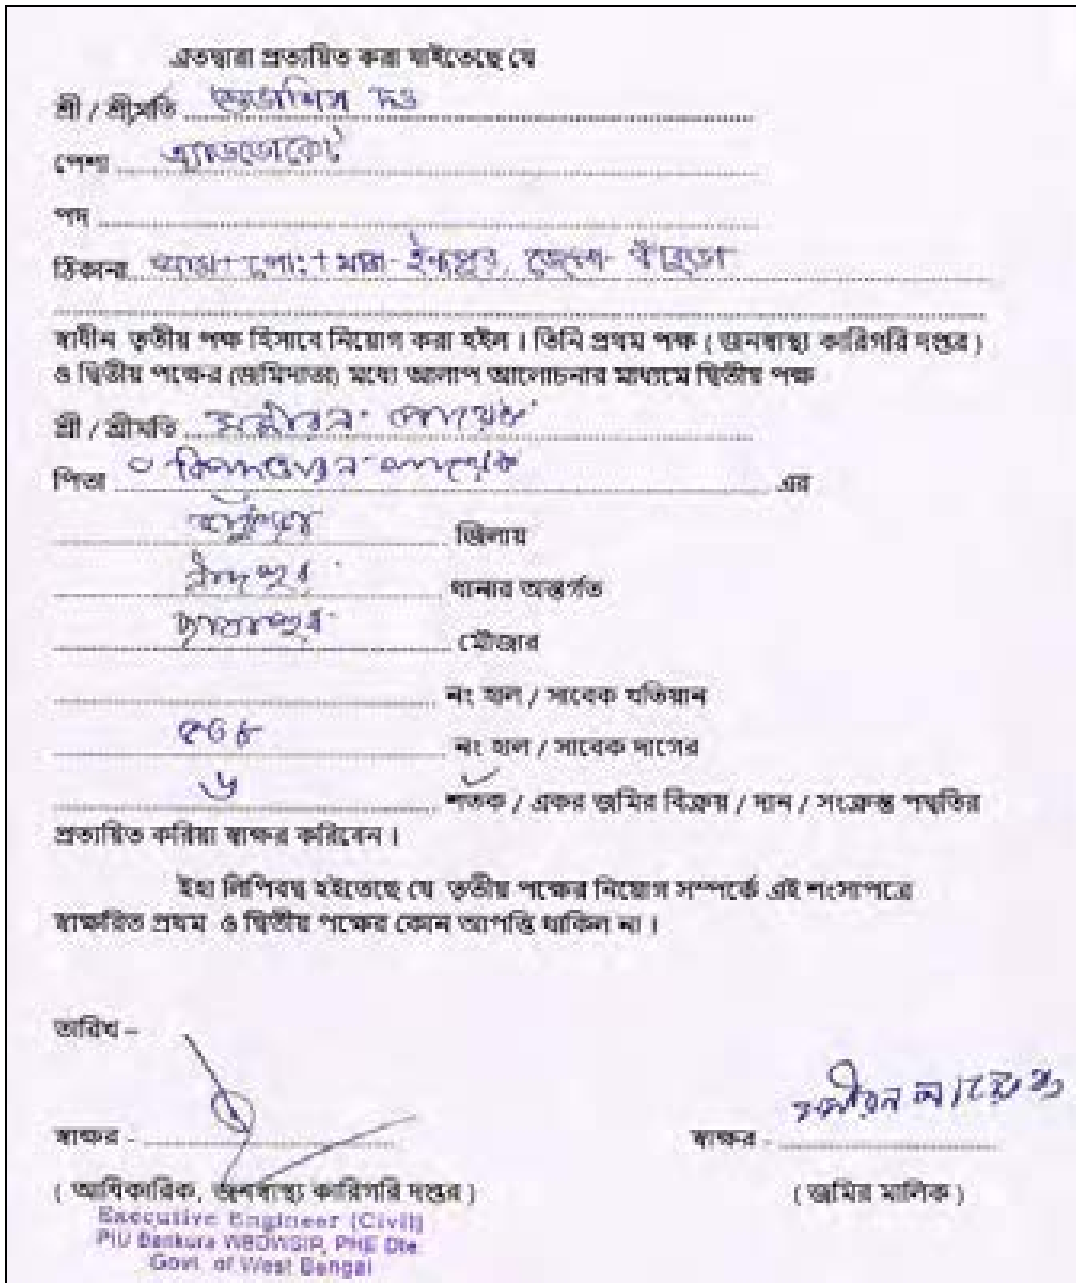 এতদ্বারা প্রত্যয়িত করা যাইতেছে যে
শ্রী / শ্রীমতি দত্ত
পেশা এ্যাডভোকেট
পদ
ঠিকানা গ্রাম + পোঃ + থানা - ইন্দপুর, জেলা - বাঁকুড়া
স্বাধীন তৃতীয় পক্ষ হিসাবে নিয়োগ করা হইল । তিনি প্রথম পক্ষ ( জনস্বাস্থ্য কারিগরি দপ্তর )
ও দ্বিতীয় পক্ষের (জমিদাতা) মধ্যে আলাপ আলোচনার মাধ্যমে দ্বিতীয় পক্ষ
শ্রী / শ্রীমতি লায়েক
পিতা লায়েক এর
বাঁকুড়া জিলায়
ইন্দপুর থানার অন্তর্গত
মৌজার
নং হাল / সাবেক খতিয়ান
৫৩৮ নং হাল / সাবেক দাগের
৬ শতক / একর জমির বিক্রয় / দান / সংক্রান্ত পদ্ধতির
প্রত্যয়িত করিয়া স্বাক্ষর করিবেন ।
ইহা লিপিবদ্ধ হইতেছে যে তৃতীয় পক্ষের নিয়োগ সম্পর্কে এই শংসাপত্রে
স্বাক্ষরিত প্রথম ও দ্বিতীয় পক্ষের কোন আপত্তি থাকিল না ।
তারিখ –
স্বাক্ষর -
স্বাক্ষর - লায়েক
( আধিকারিক, জনস্বাস্থ্য কারিগরি দপ্তর )
( জমির মালিক )
Executive Engineer (Civil)
PIU Bankura WBDWSIP, PHE Dte.
Govt. of West Bengal